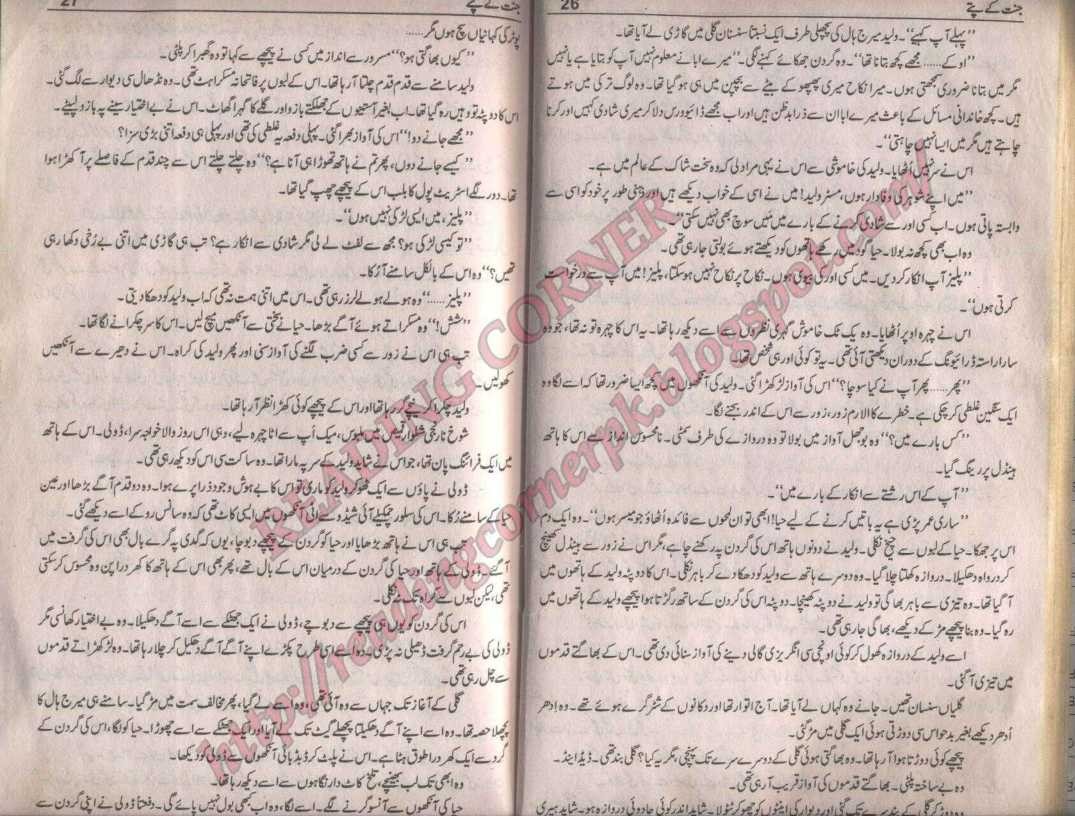 جنت کے پتے
26
”پہلے آپ کہیے“۔ ولید میرج ہال کی پچھلی طرف ایک نسبتاً سنسان گلی میں گاڑی لے آیا تھا۔
”اوکے...... مجھے کچھ بتانا تھا“۔ وہ گردن جھکائے کہنے لگی۔ ”میرے ابا نے معلوم نہیں آپ کو بتایا ہے یا نہیں
مگر میں بتانا ضروری سمجھتی ہوں۔ میرا نکاح میری پھپھو کے بیٹے سے بچپن میں ہی ہو گیا تھا۔ وہ لوگ ترکی میں ہوتے
ہیں۔ کچھ خاندانی مسائل کے باعث میرے ابا ان سے ذرا بدظن ہیں اور اب مجھے ڈائیورس دلا کر میری شادی کہیں اور کرنا
چاہتے ہیں مگر میں ایسا نہیں چاہتی“۔
اس نے سر نہیں اٹھایا۔ ولید کی خاموشی سے اس نے یہی مراد لی کہ وہ سخت شاک کے عالم میں ہے۔
”میں اپنے شوہر کی وفادار ہوں، مسٹر ولید! میں نے اسی کے خواب دیکھے ہیں اور ذہنی طور پر خود کو اسی سے
وابستہ پاتی ہوں۔ اب کسی اور سے شادی کرنے کے بارے میں میں سوچ بھی نہیں سکتی“۔
وہ اب بھی کچھ نہ بولا۔ حیا گود میں رکھے ہاتھوں کو دیکھتے ہوئے بولتی جا رہی تھی۔
”پلیز آپ انکار کر دیں۔ میں کسی اور کی بیوی ہوں۔ نکاح پر نکاح نہیں ہو سکتا، پلیز! میں آپ سے درخواست
کرتی ہوں“۔
اس نے چہرہ اوپر اٹھایا۔ وہ یک ٹک خاموش گہری نظروں سے اسے دیکھ رہا تھا۔ یہ اس کا چہرہ تو نہ تھا، جو وہ
سارا راستہ ڈرائیونگ کے دوران دیکھتی آئی تھی۔ یہ تو کوئی اور ہی شخص تھا۔
”پھر...... پھر آپ نے کیا سوچا؟“ اس کی آواز لڑکھڑا گئی۔ ولید کی آنکھوں میں کچھ ایسا ضرور تھا کہ اسے لگا وہ
ایک سنگین غلطی کر چکی ہے۔ خطرے کا الارم زور، زور سے اس کے اندر بجنے لگا۔
”کس بارے میں؟“ وہ بوجھل آواز میں بولا تو وہ دروازے کی طرف سمٹی۔ نامحسوس انداز سے اس کا ہاتھ
ہینڈل پر رینگ گیا۔
”آپ کے اس رشتے سے انکار کے بارے میں“۔
”ساری عمر پڑی ہے یہ باتیں کرنے کے لیے حیا! ابھی تو ان لمحوں سے فائدہ اٹھاؤ جو میسر ہوں“۔ وہ ایک دم
اس پر جھکا۔ حیا کے لبوں سے چیخ نکلی۔ ولید نے دونوں ہاتھ اس کی گردن پہ رکھنے چاہے، مگر اس نے زور سے ہینڈل کھینچ
کر دروازہ دھکیلا۔ دروازہ کھلتا چلا گیا۔ وہ دوسرے ہاتھ سے ولید کو دھکا دے کر باہر نکلی۔ اس کا دوپٹہ ولید کے ہاتھوں میں
آ گیا تھا۔ وہ تیزی سے باہر بھاگی تو ولید نے دوپٹہ کھینچا۔ دوپٹہ اس کی گردن کے ساتھ رگڑتا ہوا پیچھے ولید کے ہاتھوں میں
رہ گیا۔ وہ بنا پیچھے مڑ کے دیکھے، بھاگی جا رہی تھی۔
اسے ولید کے دروازہ کھول کر کوئی اونچی سی انگریزی گالی دینے کی آواز سنائی دی تھی۔ اس کے بھاگتے قدموں
میں تیزی آ گئی۔
گلیاں سنسان تھیں۔ جانے وہ کہاں لے آیا تھا۔ آج اتوار تھا اور دکانوں کے شٹر گرے ہوئے تھے۔ وہ ادھر
ادھر دیکھے بغیر بدحواس سی دوڑتی ہوئی ایک گلی میں مڑ گئی۔
پیچھے کوئی دوڑتا ہوا آ رہا تھا۔ وہ بھاگتی ہوئی گلی کے دوسرے سرے تک پہنچی، مگر یہ کیا؟ گلی بند تھی۔ ڈیڈ اینڈ۔
وہ بے ساختہ پلٹی۔ بھاگتے قدموں کی آواز قریب آ رہی تھی۔
وہ دوڑ کر گلی کے بند سرے تک گئی اور دیوار کی اینٹوں کو چھو کر ٹٹولا۔ شاید اندر کوئی جادوئی دروازہ ہو۔ شاید ہیری
جنت کے پتے
27
پوٹر کی کہانیاں سچ ہوں مگر......
”کیوں بھاگتی ہو؟“ مسرور سے انداز میں کسی نے پیچھے سے کہا تو وہ گھبرا کر پلٹی۔
ولید سامنے سے قدم قدم چلتا آ رہا تھا۔ اس کے لبوں پر فاتحانہ مسکراہٹ تھی۔ وہ نڈھال سی دیوار سے لگ گئی۔
اس کا دوپٹہ تو وہیں رہ گیا تھا۔ اب بغیر آستینوں کے جھلکتے بازو اور گلے کا گہرا گھاٹ۔ اس نے بے اختیار سینے پہ بازو لپیٹے۔
”مجھے جانے دو!“ اس کی آواز بھرا گئی۔ پہلی دفعہ یہ غلطی کی تھی اور پہلی ہی دفعہ اتنی بڑی سزا؟
”کیسے جانے دوں، پھر تم نے ہاتھ تھوڑا ہی آنا ہے؟“ وہ چلتے چلتے اس سے چند قدم کے فاصلے پر آ کھڑا ہوا
تھا۔ دور لگے اسٹریٹ پول کا بلب اس کے پیچھے چھپ گیا تھا۔
”پلیز، میں ایسی لڑکی نہیں ہوں“۔
”تو کیسی لڑکی ہو؟ مجھ سے لفٹ لے لی مگر شادی سے انکار ہے؟ تب ہی گاڑی میں اتنی بے رخی دکھا رہی
تھیں؟“ وہ اس کے بالکل سامنے آ رکا۔
”پلیز......“ وہ ہولے ہولے لرز رہی تھی۔ اس میں اتنی ہمت نہ تھی کہ اب ولید کو دھکا دیتی۔
”شش!“ وہ مسکراتے ہوئے آگے بڑھا۔ حیا نے سختی سے آنکھیں میچ لیں۔ اس کا سر چکرانے لگا تھا۔
تب ہی اس نے زور سے کسی ضرب لگنے کی آواز سنی اور پھر ولید کی کراہ۔ اس نے دھیرے سے آنکھیں
کھولیں۔
ولید چکرا کر نیچے گر رہا تھا اور اس کے پیچھے کوئی کھڑا نظر آ رہا تھا۔
شوخ نارنجی شلوار قمیص میں ملبوس، میک اپ سے اٹا چہرہ لیے، وہی اس روز والا خواجہ سرا، ڈولی۔ اس کے ہاتھ
میں ایک فرائنگ پان تھا، جو اس نے شاید ولید کے سر پہ مارا تھا۔ وہ ساکت سی اس کو دیکھ رہی تھی۔
ڈولی نے پاؤں سے ایک ٹھوکر ولید کو ماری تو اس کا بے ہوش وجود ذرا پرے ہوا۔ وہ دو قدم آگے بڑھا اور عین
حیا کے سامنے رکا۔ اس کی سلور چمکیلے آئی شیڈو سے اٹی آنکھوں میں ایسی کاٹ تھی کہ وہ سانس روکے اسے دیکھے گئی۔
تب ہی اس نے ہاتھ بڑھایا اور حیا کو گردن کے پیچھے سے دبوچا، یوں کہ گدی پہ گرے بال بھی اس کی گرفت میں
آ گئے۔ ڈولی کے ہاتھ اور حیا کی گردن کے درمیان اس کے بال تھے، پھر بھی اس کے ہاتھ کا کھردرا پن وہ محسوس کر سکتی
تھی، لیکن لبوں سے کراہ تک نہ نکلی۔
اس کی گردن کو یوں ہی پیچھے سے دبوچے، ڈولی نے ایک جھٹکے سے اسے آگے دھکیلا۔ وہ بے اختیار کھانسی مگر
ڈولی کی بے رحم گرفت ڈھیلی نہ پڑی۔ وہ اسے اسی طرح پکڑے اپنے آگے آگے دھکیل کر چلا رہا تھا۔ وہ لڑکھڑاتے قدموں
سے چل رہی تھی۔
گلی کے آغاز تک جہاں سے وہ آئی تھی، وہ اسے لے گیا، پھر مخالف سمت میں مڑ گیا۔ سامنے ہی میرج ہال کا
پچھلا حصہ تھا۔ وہ اسے اپنے آگے دھکیلتا پچھلے گیٹ تک لے آیا اور ایک جھٹکے سے اسے چھوڑا۔ حیا کو لگا، اس کی گردن کے
گرد سے ایک کھردرا طوق ہٹا ہے۔ اس نے پلٹ کر ڈبڈبائی آنکھوں سے ڈولی کو دیکھا۔
وہ ابھی تک لب بھینچے، تلخ کاٹ دار نگاہوں سے اسے دیکھ رہا تھا۔
حیا کی آنکھوں سے آنسو گرنے لگے۔ اسے لگا، وہ اب بھی بول نہیں پائے گی۔ دفعتاً ڈولی نے اپنی گردن سے
READING CORNER
http://readingcornerpk.blogspot.com/